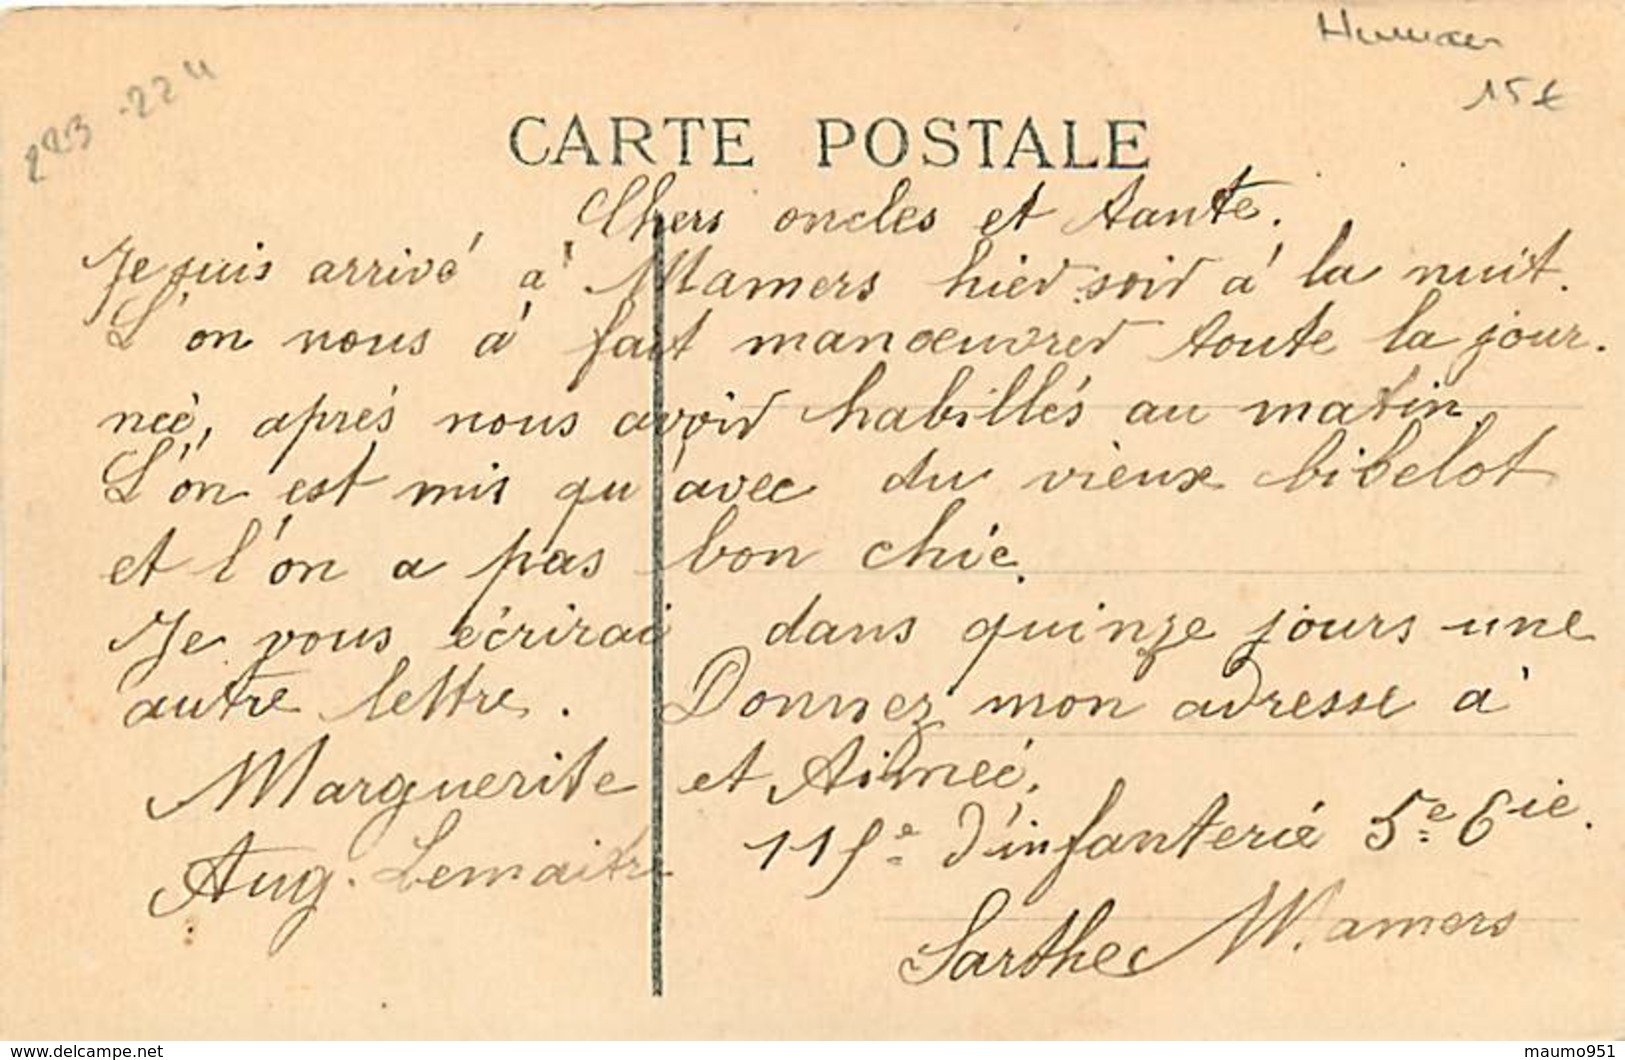 223-224
15€
CARTE POSTALE
Chers oncles et tante.
Je suis arrivé à Mamers hier soir à la nuit.
L'on nous à fait manœuvrer toute la jour.
neè, aprés nous avoir habillés au matin
L'on est mis qu'avec du vieux bibelot
et l'on a pas bon chic.
Je vous écrirai dans quinze jours une
autre lettre. Donnez mon adresse à
Marguerite et Aimeé.
Aug. Lemaitre 115e d'infanterie 5e Cie.
Sarthe Mamers
delcampe.net
maumo951